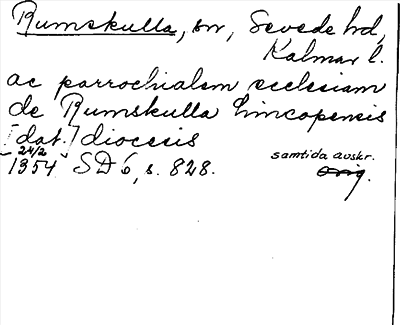 Rumskulla, sn, Sevede hd,
Kalmar l.
ac parrochialem ecclesiam
de Rumskulla Lincopensis
[dat.] diocesis
24/2 samtida avskr.
1354 SD 6, s. 828. orig.